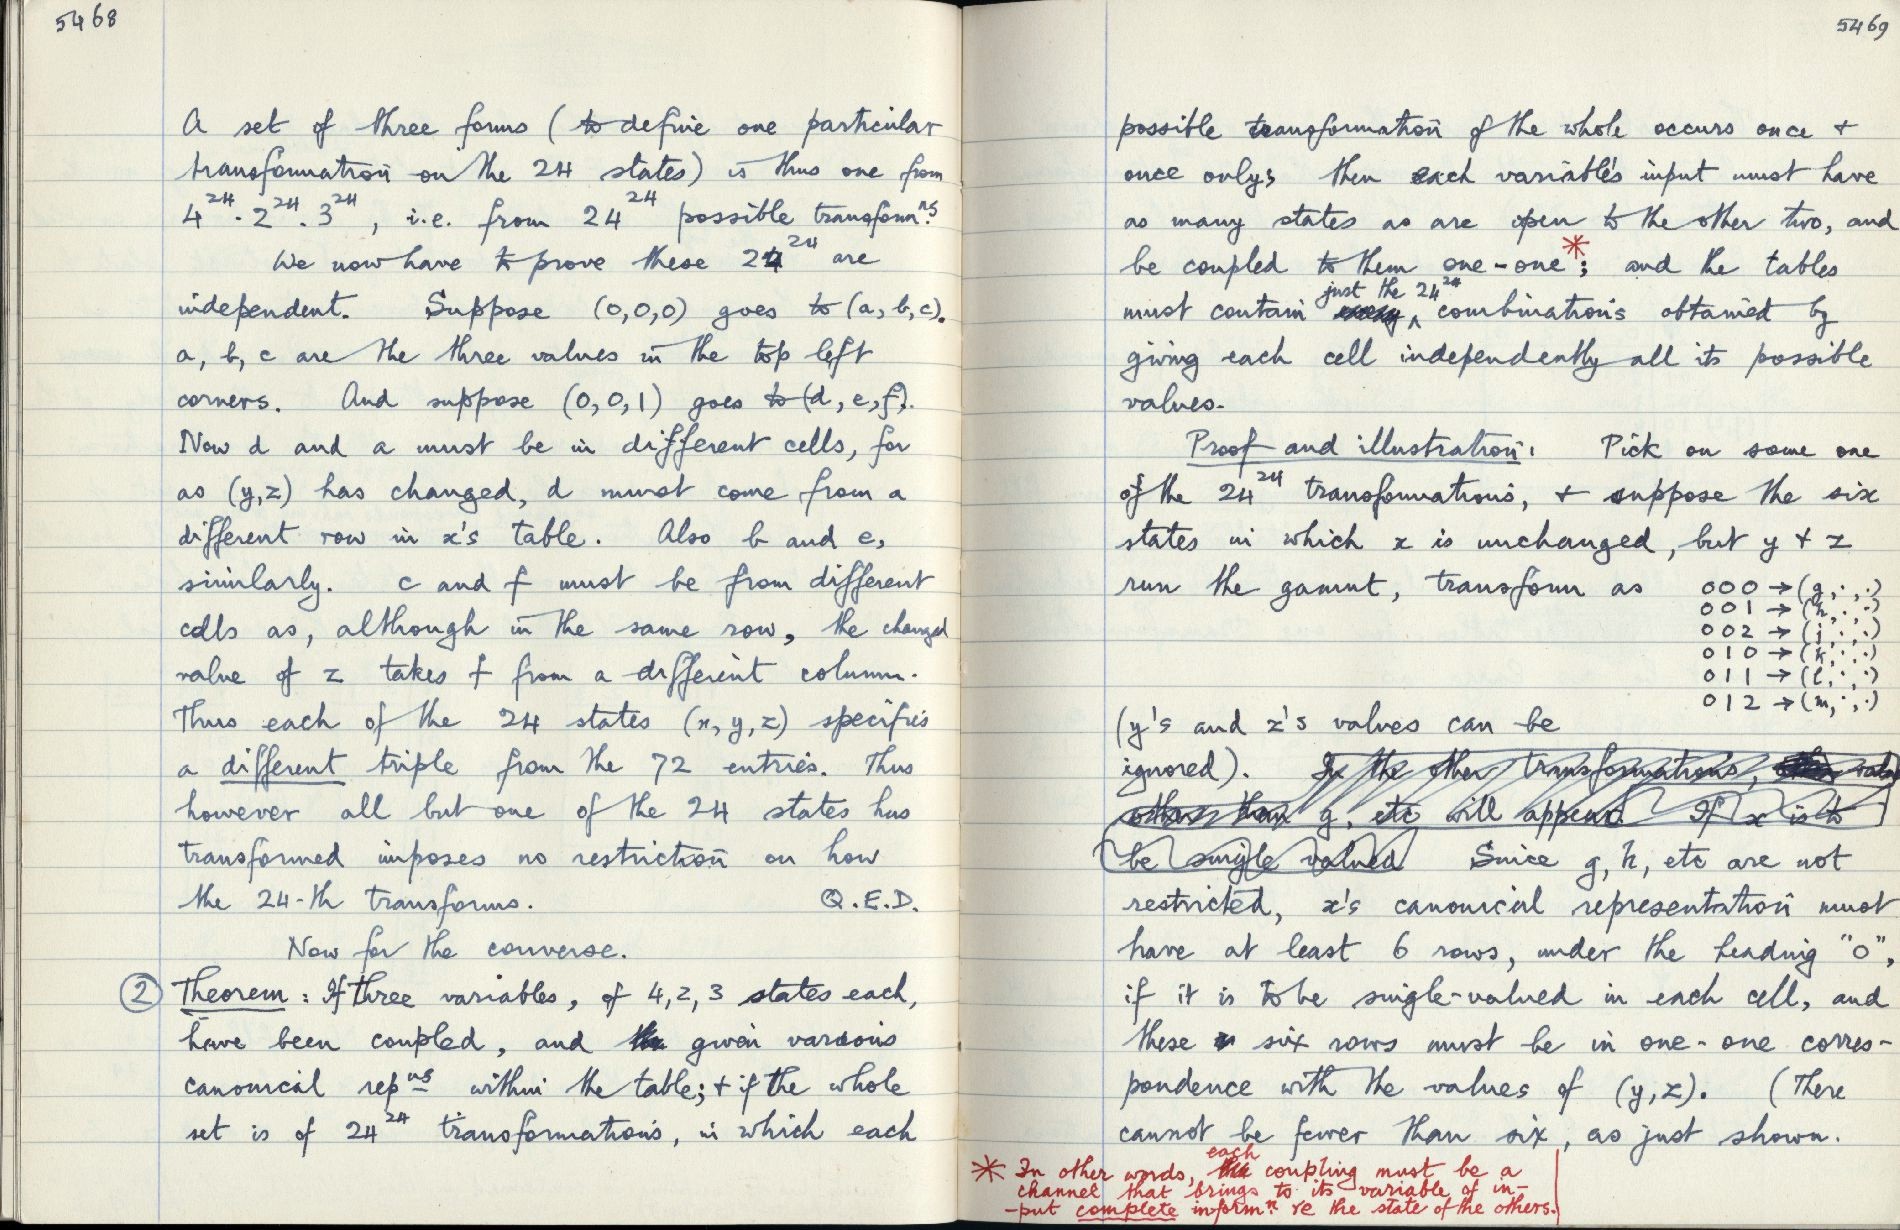 5468
A set of three forms (to define one particular
transformation on the 24 states) is thus one from
4²⁴ . 2²⁴ . 3²⁴ , i.e. from 24²⁴ possible transform.ns
We now have to prove these 24²⁴ are
independent. Suppose (0,0,0) goes to (a, b, c).
a, b, c are the three values in the top left
corners. And suppose (0,0,1) goes to (d, e, f).
Now d and a must be in different cells, for
as (y,z) has changed, d must come from a
different row in x's table. Also b and e,
similarly. c and f must be from different
cells as, although in the same row, the changed
value of z takes f from a different column.
Thus each of the 24 states (x, y, z) specifies
a different triple from the 72 entries. Thus
however all but one of the 24 states has
transformed imposes no restriction on how
the 24-th transforms. Q.E.D.
Now for the converse.
② Theorem : If three variables, of 4, 2, 3 states each,
have been coupled, and given various
canonical repns within the table; + if the whole
set is of 24²⁴ transformations, in which each
5469
possible transformation of the whole occurs once +
once only; then each variable's input must have
as many states as are open to the other two, and
be coupled to them one-one*; and the tables
must contain just the 24²⁴ combinations obtained by
giving each cell independently all its possible
values.
Proof and illustration: Pick on some one
of the 24²⁴ transformations, + suppose the six
states in which x is unchanged, but y + z
run the gamut, transform as
000 → (g, ·, ·)
001 → (h, ·, ·)
002 → (j, ·, ·)
010 → (k, ·, ·)
011 → (l, ·, ·)
012 → (m, ·, ·)
(y's and z's values can be
ignored). In the other transformations,
other than g, etc will appear. If x is to
be single valued Since g, h, etc are not
restricted, x's canonical representation must
have at least 6 rows, under the heading "0",
if it is to be single-valued in each cell, and
these six rows must be in one-one corres-
pondence with the values of (y, z). (There
cannot be fewer than six, as just shown.
* In other words, each coupling must be a
channel that brings to its variable of in-
-put complete inform.n re the state of the others.